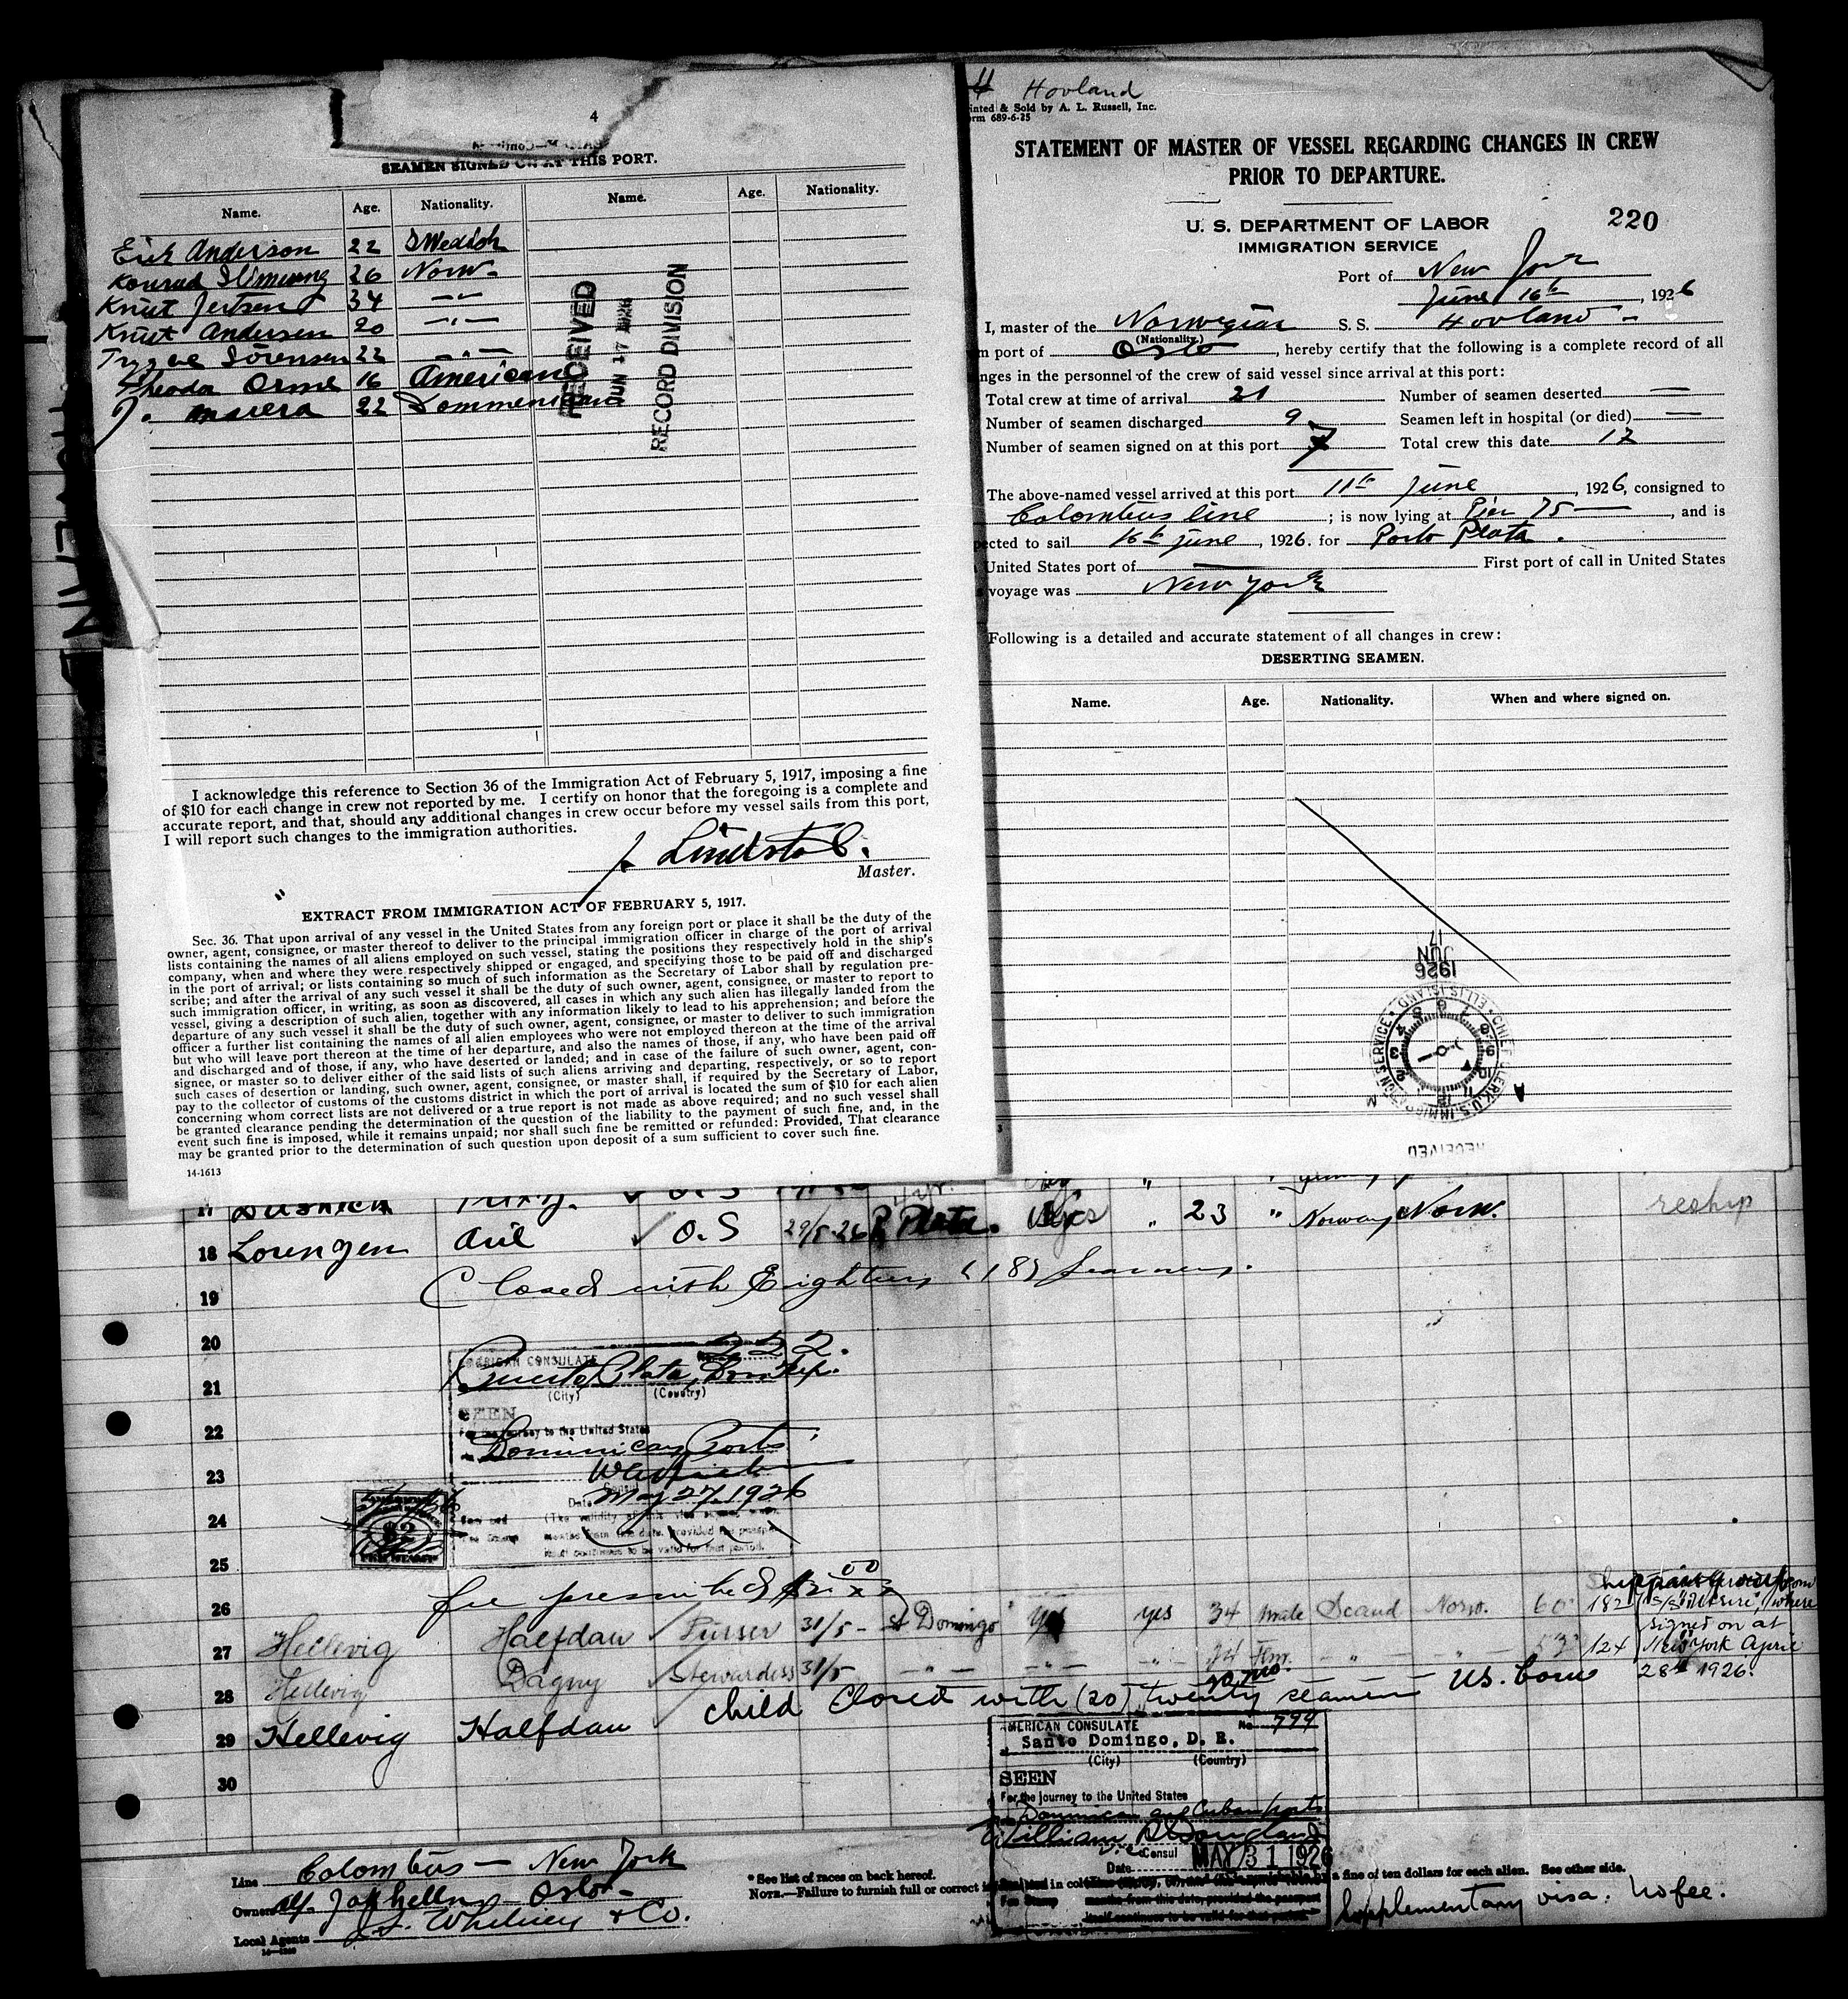 4
SEAMEN SIGNED ON AT THIS PORT.
Name. Age. Nationality. Name. Age. Nationality.
Erik Anderson 22 Swedish
Konrad 26 Norw.
Knut Jertsen 34 —"—
Knut Andersen 20 —"—
Trygve Sörensen 22 —"—
Theodor Orme 16 American
J. 22 Dommenican
RECEIVED
JUN 17 1926
RECORD DIVISION
I acknowledge this reference to Section 36 of the Immigration Act of February 5, 1917, imposing a fine
of $10 for each change in crew not reported by me. I certify on honor that the foregoing is a complete and
accurate report, and that, should any additional changes in crew occur before my vessel sails from this port,
I will report such changes to the immigration authorities.
Master.
EXTRACT FROM IMMIGRATION ACT OF FEBRUARY 5, 1917.
Sec. 36. That upon arrival of any vessel in the United States from any foreign port or place it shall be the duty of the
owner, agent, consignee, or master thereof to deliver to the principal immigration officer in charge of the port of arrival
lists containing the names of all aliens employed on such vessel, stating the positions they respectively hold in the ship's
company, when and where they were respectively shipped or engaged, and specifying those to be paid off and discharged
in the port of arrival; or lists containing so much of such information as the Secretary of Labor shall by regulation pre-
scribe; and after the arrival of any such vessel it shall be the duty of such owner, agent, consignee, or master to report to
such immigration officer, in writing, as soon as discovered, all cases in which any such alien has illegally landed from the
vessel, giving a description of such alien, together with any information likely to lead to his apprehension; and before the
departure of any such vessel it shall be the duty of such owner, agent, consignee, or master to deliver to such immigration
officer a further list containing the names of all alien employees who were not employed thereon at the time of the arrival
but who will leave port thereon at the time of her departure, and also the names of those, if any, who have been paid off
and discharged and of those, if any, who have deserted or landed; and in case of the failure of such owner, agent, con-
signee, or master so to deliver either of the said lists of such aliens arriving and departing, respectively, or so to report
such cases of desertion or landing, such owner, agent, consignee, or master shall, if required by the Secretary of Labor,
pay to the collector of customs of the customs district in which the port of arrival is located the sum of $10 for each alien
concerning whom correct lists are not delivered or a true report is not made as above required; and no such vessel shall
be granted clearance pending the determination of the question of the liability to the payment of such fine, and, in the
event such fine is imposed, while it remains unpaid; nor shall such fine be remitted or refunded: Provided, That clearance
may be granted prior to the determination of such question upon deposit of a sum sufficient to cover such fine.
14-1613
Hovland
inted & Sold by A. L. Russell, Inc.
rm 689-6-25
STATEMENT OF MASTER OF VESSEL REGARDING CHANGES IN CREW
PRIOR TO DEPARTURE.
U. S. DEPARTMENT OF LABOR
220
IMMIGRATION SERVICE
Port of New York
June 16th, 1926
I, master of the Norwegian S. S. Hovland
(Nationality.)
m port of Oslo, hereby certify that the following is a complete record of all
nges in the personnel of the crew of said vessel since arrival at this port:
Total crew at time of arrival 21 Number of seamen deserted —
Number of seamen discharged 9 Seamen left in hospital (or died) —
Number of seamen signed on at this port 7 Total crew this date 17
The above-named vessel arrived at this port 11th June, 1926, consigned to
Colombus line; is now lying at Pier 75 —, and is
ected to sail 16th June, 1926. for Porto Plata.
United States port of — First port of call in United States
voyage was New York
Following is a detailed and accurate statement of all changes in crew:
DESERTING SEAMEN.
Name. Age. Nationality. When and where signed on.
17
JUN
1926
CHIEF CLERK, U.S. IMMIGRATION SERVICE • ELLIS ISLAND
RECEIVED
17
18 Lorengen Aril ✓ O.S 29/5-26 P. Plata. Yes " 23 " Norway Norw. reship
19 Closed with Eighteen (18) Seamen.
20
21
22
23
24
25
26
AMERICAN CONSULATE No. 222.
Puerto Plata, Dom. Rep.
(City) (Country)
SEEN
For the journey to the United States
Dominican Ports
Consul
Date May 27, 1926
$2
FEE STAMP
fee prescribed $2.00
27 Hellevig Halfdan ✓ Purser 31/5 - St Domingo Yes yes 34 Male Scand Norw. 60" 182
28 Hellevig Dagny Stewardess 31/5 —"— —"— —"— 24 Fem. —"— 124
signed on at
New York April
28th 1926.
20 mo.
child Closed with (20) twenty seamen US. born
29 Hellevig Halfdan
30
AMERICAN CONSULATE No. 799
Santo Domingo, D. R.
(City) (Country)
SEEN
For the journey to the United States
Dominican and Cuban ports
William
Vice Consul
Date MAY 31 1926
Supplementary visa. No fee.
Line Colombus — New York
Owners — Oslo —
Local Agents J. S. Whitney & Co.
* See list of races on back hereof.
NOTE.—Failure to furnish full or correct a fine of ten dollars for each alien. See other side.